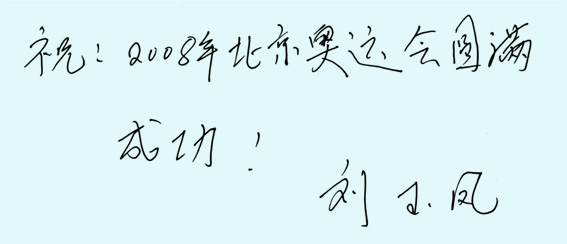 祝：2008年北京奥运会圆满
成功！
刘玉凤